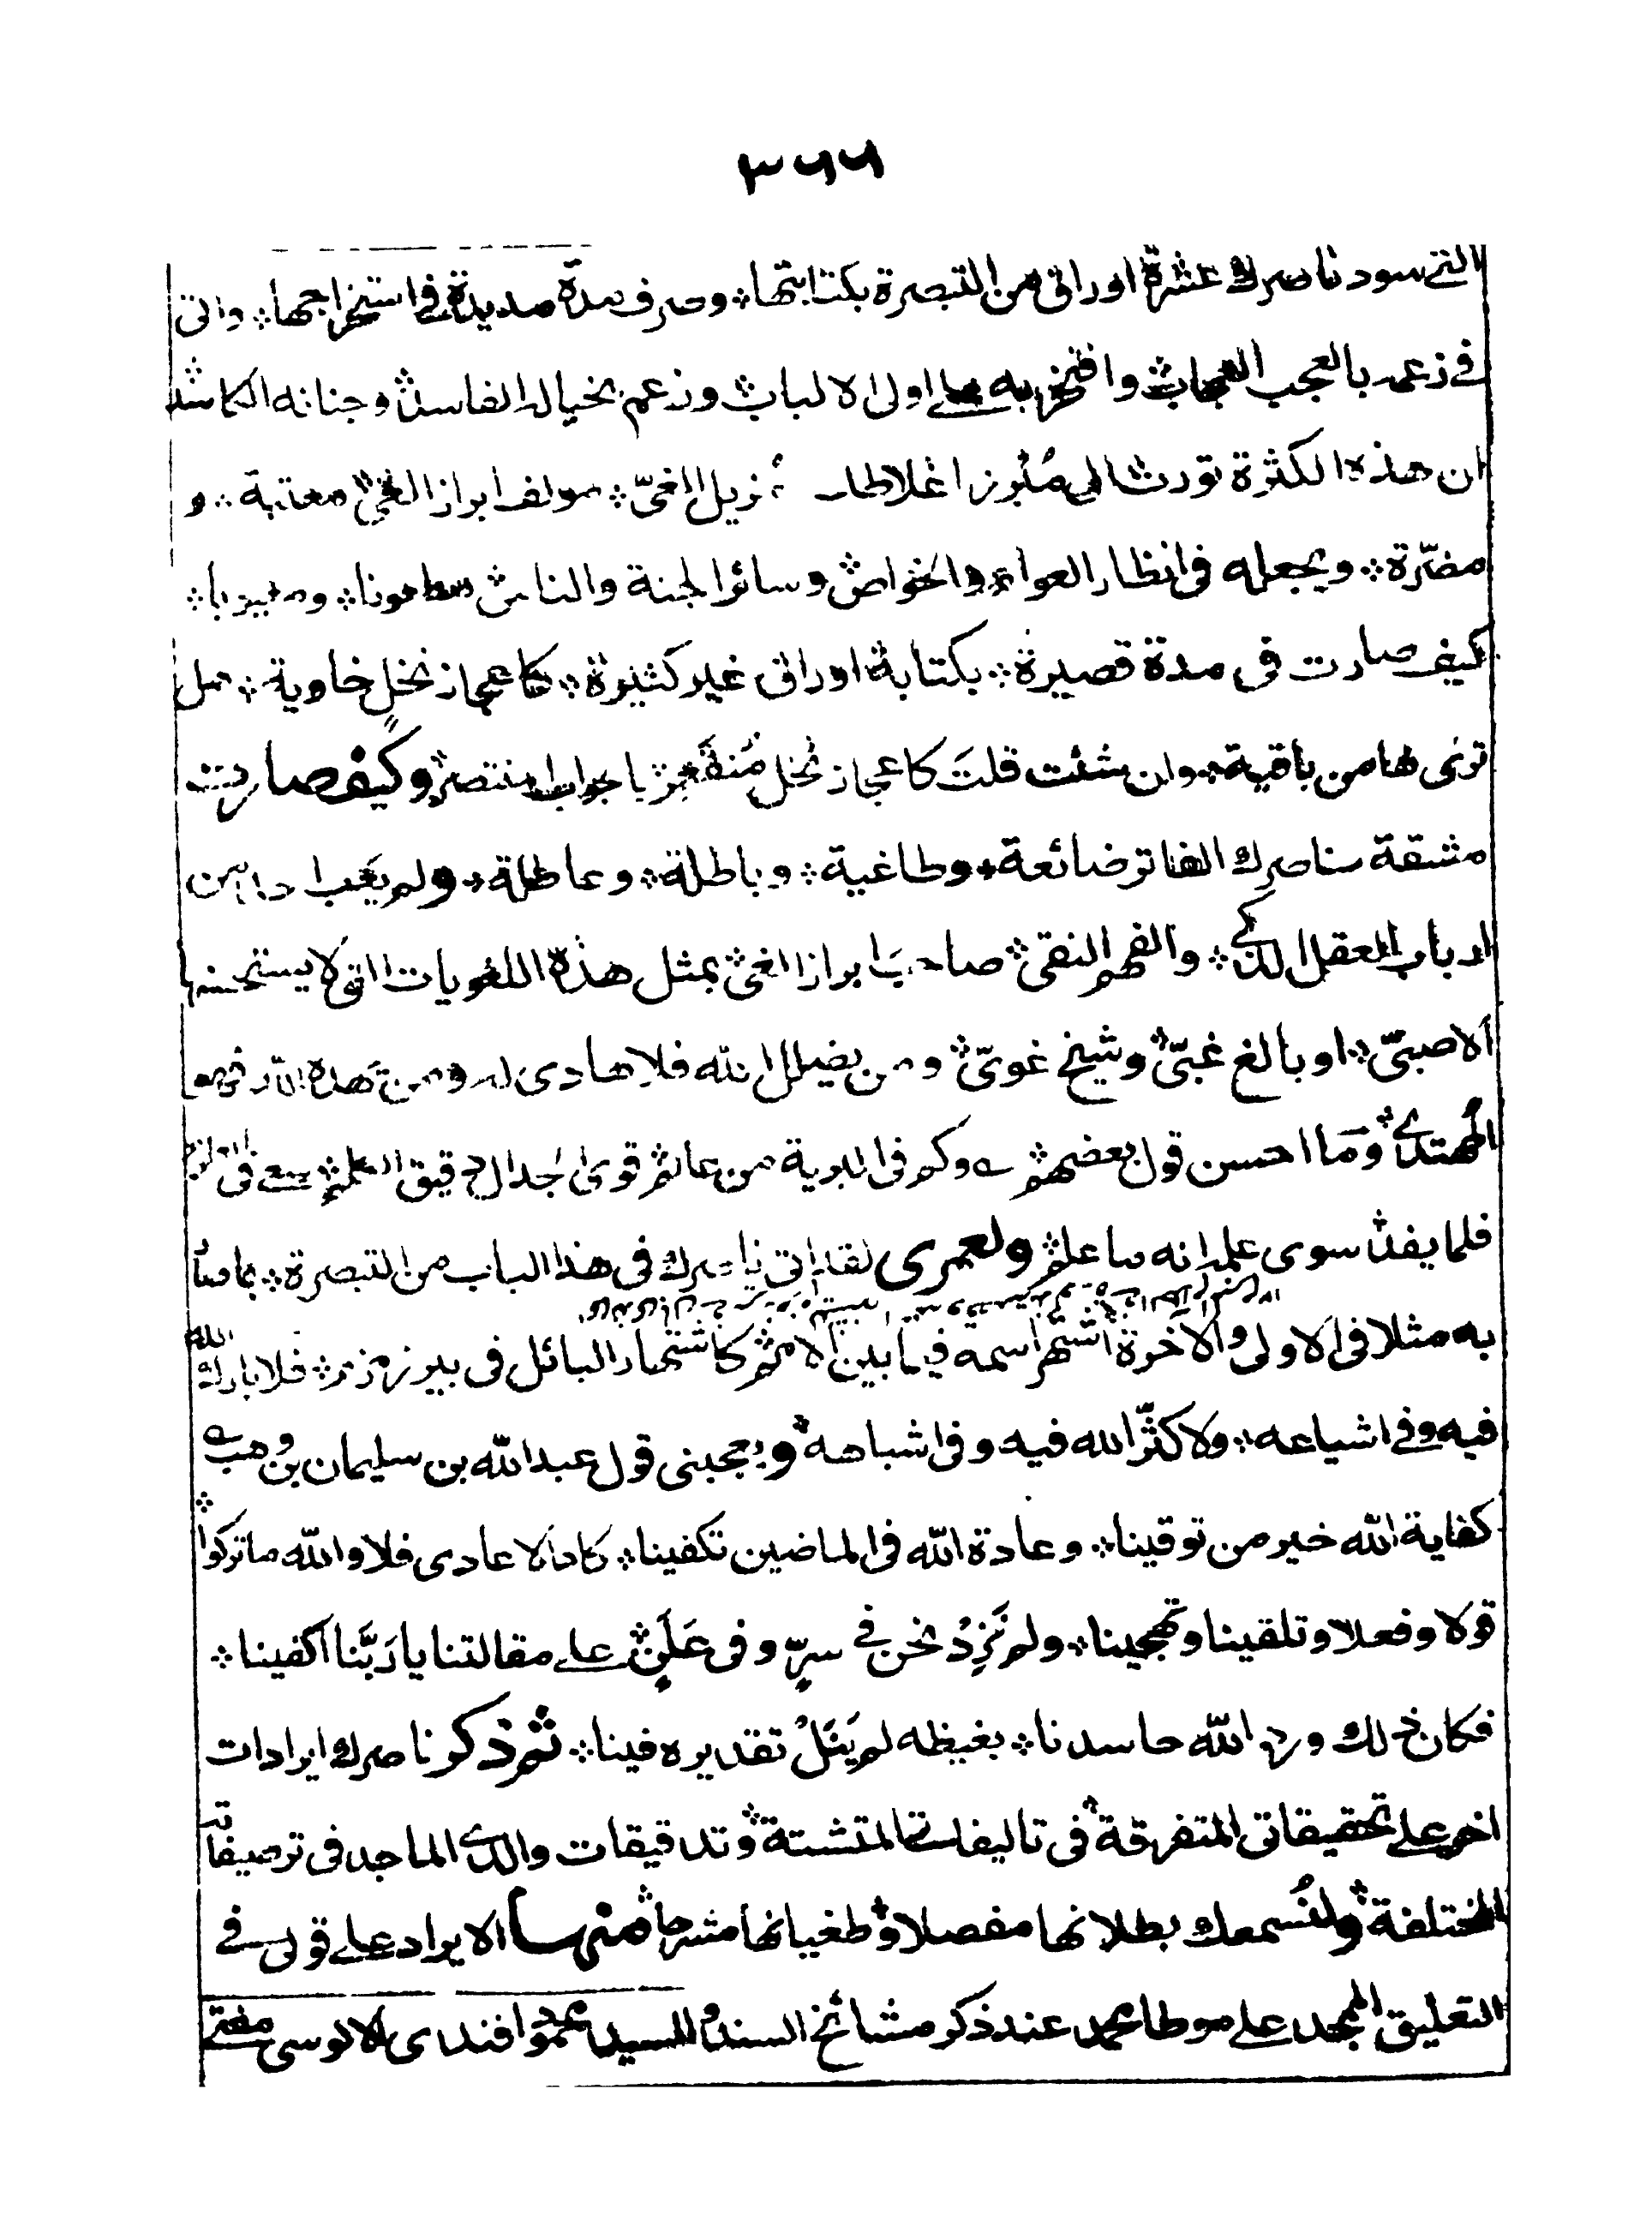 ٣٦٦
التے سود ناصرك عشرة اوراق من التبصرة بكتابتها ؞ وصرف مدة مديدة فے استخراجها ؞ واتى
فے زعمه بالعجب العجاب ؞ وافتخر به علے اولى الالباب ؞ وزعم بخياله الفاسد ؞ وجنانه الكاسد ؞
ان هذه الكثرة تورث الى مُبْرِز اغلاطه مزيل الغىّ ؞ مولف ابراز الغىّ ؞ معتبة ؞ و
مضرّة ؞ ويجعله فى انظار العوام والخواص ؞ وسائر الجنة والناس ؞ مطعونا ؞
كيف صارت فى مدة قصيرة ؞ بكتابة اوراق غير كثيرة ؞ كاعجاز نخل خاوية ؞ هل
ترى لها من باقية ؞ وان شئت قلتَ كاعجاز نخل مُنقَعِر ؞ باجواب منتصر ؞ وكيف صارت
مشقة ناصرك الفاتر ضائعة ؞ وطاغية ؞ وباطلة ؞ وعاطلة ؞ ولم يَعِب احد من
ارباب العقل الذكے ؞ والفهم النقى ؞ صاحبَ ابراز الغى ؞ بمثل هذه اللغويات التى لا يستحسنها
الا صبىّ ؞ او بالغ غبىّ ؞ وشيخ غوىّ ؞ ومن يضلل الله فلا هادى له ومن يهده الله فهو
المُهتدے ؞ وَما احسن قول بعضهم ؞ ے وكم فى البرية من عالم ؞ قوى الجدال دقيق الكلم ؞ سعى فى العلوم
فلما يفد ؞ سوى علمه انه ما علم ؞ ولعمرى لقد اتى ناصرك فى هذا الباب من التبصرة ؞ بما صار
به مثلا فى الاولى والآخرة ؞ اشتهر اسمه فيما بين الامم ؞ كاشتهار البائل فى بير زمزم ؞ فلا بارك الله
فيه وفے اشياعه ؞ ولا كثّر الله فيه وفى اشباهه ؞ ويعجبنى قول عبد الله بن سليمان بن وهب ے
كفاية الله خير من توقينا ؞ وعادة الله فى الماضين تكفينا ؞ كاد الاعادى فلا والله ما تركوا ؞
قولا وفعلا وتلقينا وتهجينا ؞ ولم نَزِدْ نحن فے سرٍّ وفى عَلَنٍ ؞ علے مقالتنا يا رَبَّنا اكفينا ؞
فكان ذلك ورد الله حاسدنا ؞ بغيظه لم يَنَلْ تقديره فينا ؞ ثم ذكر ناصرك ايرادات
اخر علے تحقيقاتى المتفرقة ؞ فى تاليفاتے المتشتة ؞ وتدقيقات والدے الماجد فى ترصيفاته
المختلفة ؞ ولنُسمعك بطلانها مفصلا ؞ وطغيانها مشرحا ؞ منها الايراد علے قولى فے
التعليق الممجد علے موطا محمد عند ذكر مشائخ السند والسيد محمود افندى الالوسى مفتے